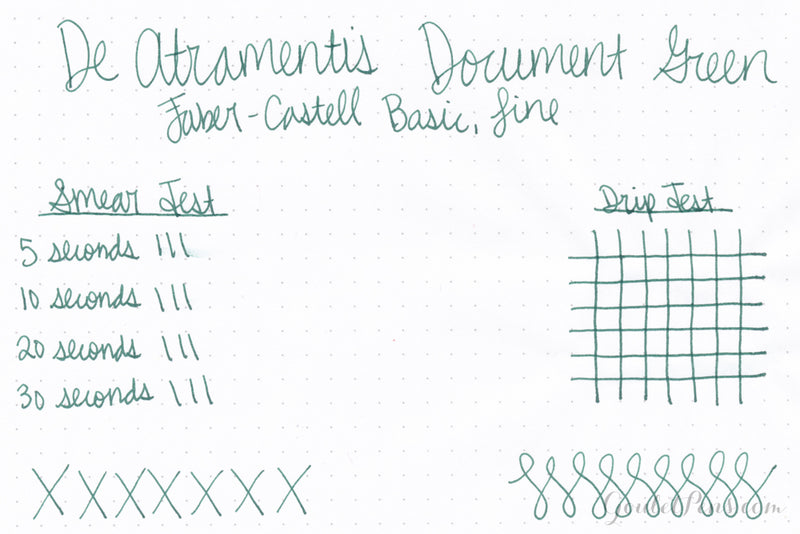 De Atramentis Document Green
Faber-Castell Basic, fine
Smear Test
5 seconds
10 seconds
20 seconds
30 seconds
Drip Test
XXXXXXX
GouletPens.com